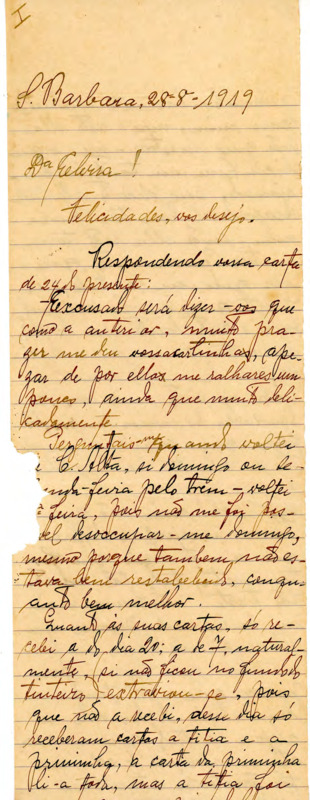 I
S. Barbara, 28-8-1919
Da Felvira!
Felicidades, vos desejo.
Respondendo vossa carta
de 24 do presente:
Excusado será dizer-vos que
como a anterior, muito pra-
zer me deu vossa cartinha, ape-
zar de por ellas me ralhares um
pouco, ainda que muito deli-
cadamente.
Perguntais-me quando voltei
C. Alta, si domingo ou se-
unda-feira pelo trem - voltei
feira, pois não me foi pos-
vel desoccupar-me domingo,
mesmo porque tambem não es-
tava bem restabelecido, conqu-
anto bem melhor.
Quanto ás suas cartas, só re-
cebi a do dia 20; a de 7, natural-
mente, si não ficou no fundo do
tinteiro extraviou-se, pois
que não a recebi, desse dia só
receberam cartas a titia e a
priminha, a carta da priminha
li-a toda, mas a titia foi